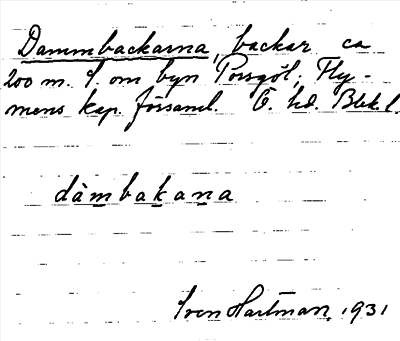 Dammbackarna, backar ca
200 m. S. om byn Porsgöl; Fly-
mens kap. församl. Ö. hd. Blek. l.
dàmbakana
Sven Hartman, 1931